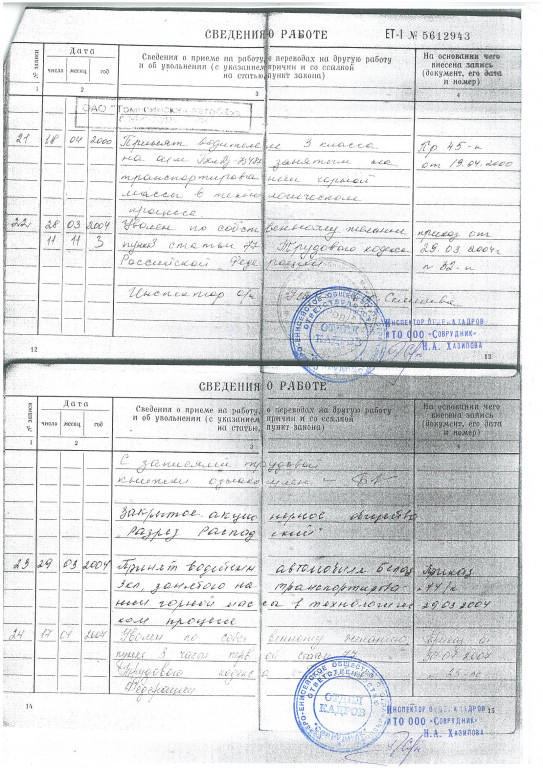 СВЕДЕНИЯ О РАБОТЕ
ЕТ-I № 5612943
№ записи
Дата
число месяц год
Сведения о приеме на работу, о переводах на другую работу
и об увольнении (с указанием причин и со ссылкой
на статью, пункт закона)
На основании чего
внесена запись
(документ, его дата
и номер)
1 2 3 4
ОАО
21 18 04 2000 Принят водителем 3 класса Пр 45-к
на а/м занятым на от 19.04.2000
транспортировании горной
массы в технологическом
процессе
22 28 03 2004 Уволен по собственному желанию приказ от
пункт 3 статьи 77 Трудового кодекса 29.03.2004г
Российской Федерации № 82-к
Инспектор о/к
ОТДЕЛ
КАДРОВ
ИНСПЕКТОР ОТДЕЛА КАДРОВ
ИТО ООО «СОВРУДНИК»
Н.А. ХАЗИПОВА
12 13
СВЕДЕНИЯ О РАБОТЕ
№ записи
Дата
число месяц год
Сведения о приеме на работу, о переводах на другую работу
и об увольнении (с указанием причин и со ссылкой
на статью, пункт закона)
На основании чего
внесена запись
(документ, его дата
и номер)
1 2 3 4
С записями трудовой
книжки ознакомлен
Закрытое акционерное общество
"Разрез Распадский"
23 29 03 2004 Принят водителем автомобиля белаз Приказ
3кл. занятого на транспортирова-
нии горной массы в технологичес- 29.03.2004
ком процессе
24 17 07 2007 Уволен по собственному желанию
пункт 3 части первой статьи 77
Трудового кодекса
Федерации
СЕВЕРО-ЕНИСЕЙСКОЕ ОБЩЕСТВО
ОТВЕТСТВЕННОСТЬЮ
ОТДЕЛ
КАДРОВ
"СОВРУДНИК"
ИНСПЕКТОР ОТДЕЛА КАДРОВ
ИТО ООО «СОВРУДНИК»
Н.А. ХАЗИПОВА
14 15